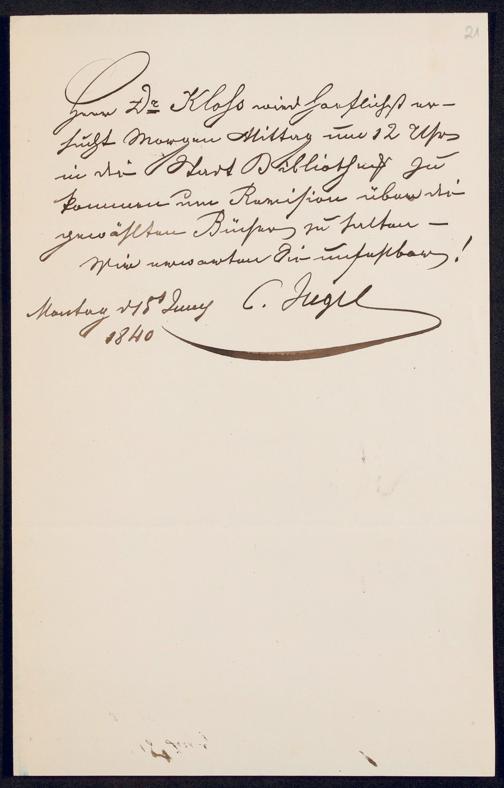 21
Herr Dr Kloss wird höflichst er-
sucht Morgen Mittag um 12 Uhr
in die Stadt Bibliothek zu
kommen um Revision über die
gewählten Bücher zu halten –
Wir erwarten Sie unfehlbar!
Montag d 15t Juny C. Jügel
1840